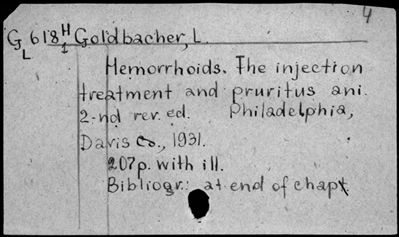 4
G 618 H Goldbacher, L.
L 1
Hemorrhoids. The injection
treatment and pruritus ani.
2-nd rev. ed. Philadelphia,
Davis Co., 1931.
207p. with ill.
Bibliogr.: at end of chapt